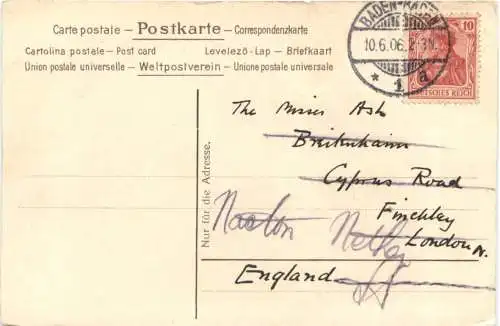 Carte postale – Postkarte – Correspondenzkarte
Cartolina postale – Post card Levelező-Lap – Briefkaart
Union postale universelle – Weltpostverein – Unione postale universale
BADEN-BADEN
10.6.06.2-3N.
* 1 a
10
DEUTSCHES REICH
Nur für die Adresse.
The Misses Ash
Cyprus Road
Finchley
London N.
England